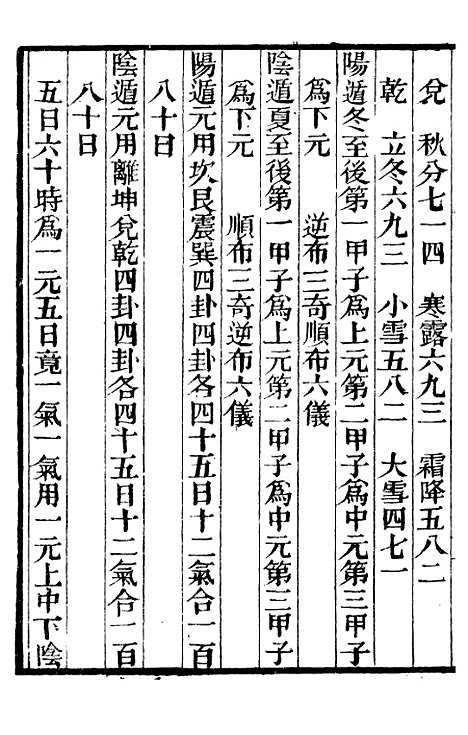 兌　秋分七一四　寒露六九三　霜降五八二
乾　立冬六九三　小雪五八二　大雪四七一
陽遁冬至後第一甲子爲上元第二甲子爲中元第三甲子
爲下元　　逆布三奇順布六儀
陰遁夏至後第一甲子爲上元第二甲子爲中元第三甲子
爲下元　　順布三奇逆布六儀
陽遁元用坎艮震巽四卦四卦各四十五日十二氣合一百
八十日
陰遁元用離坤兌乾四卦四卦各四十五日十二氣合一百
八十日
五日六十時爲一元五日竟一氣一氣用一元上中下陰